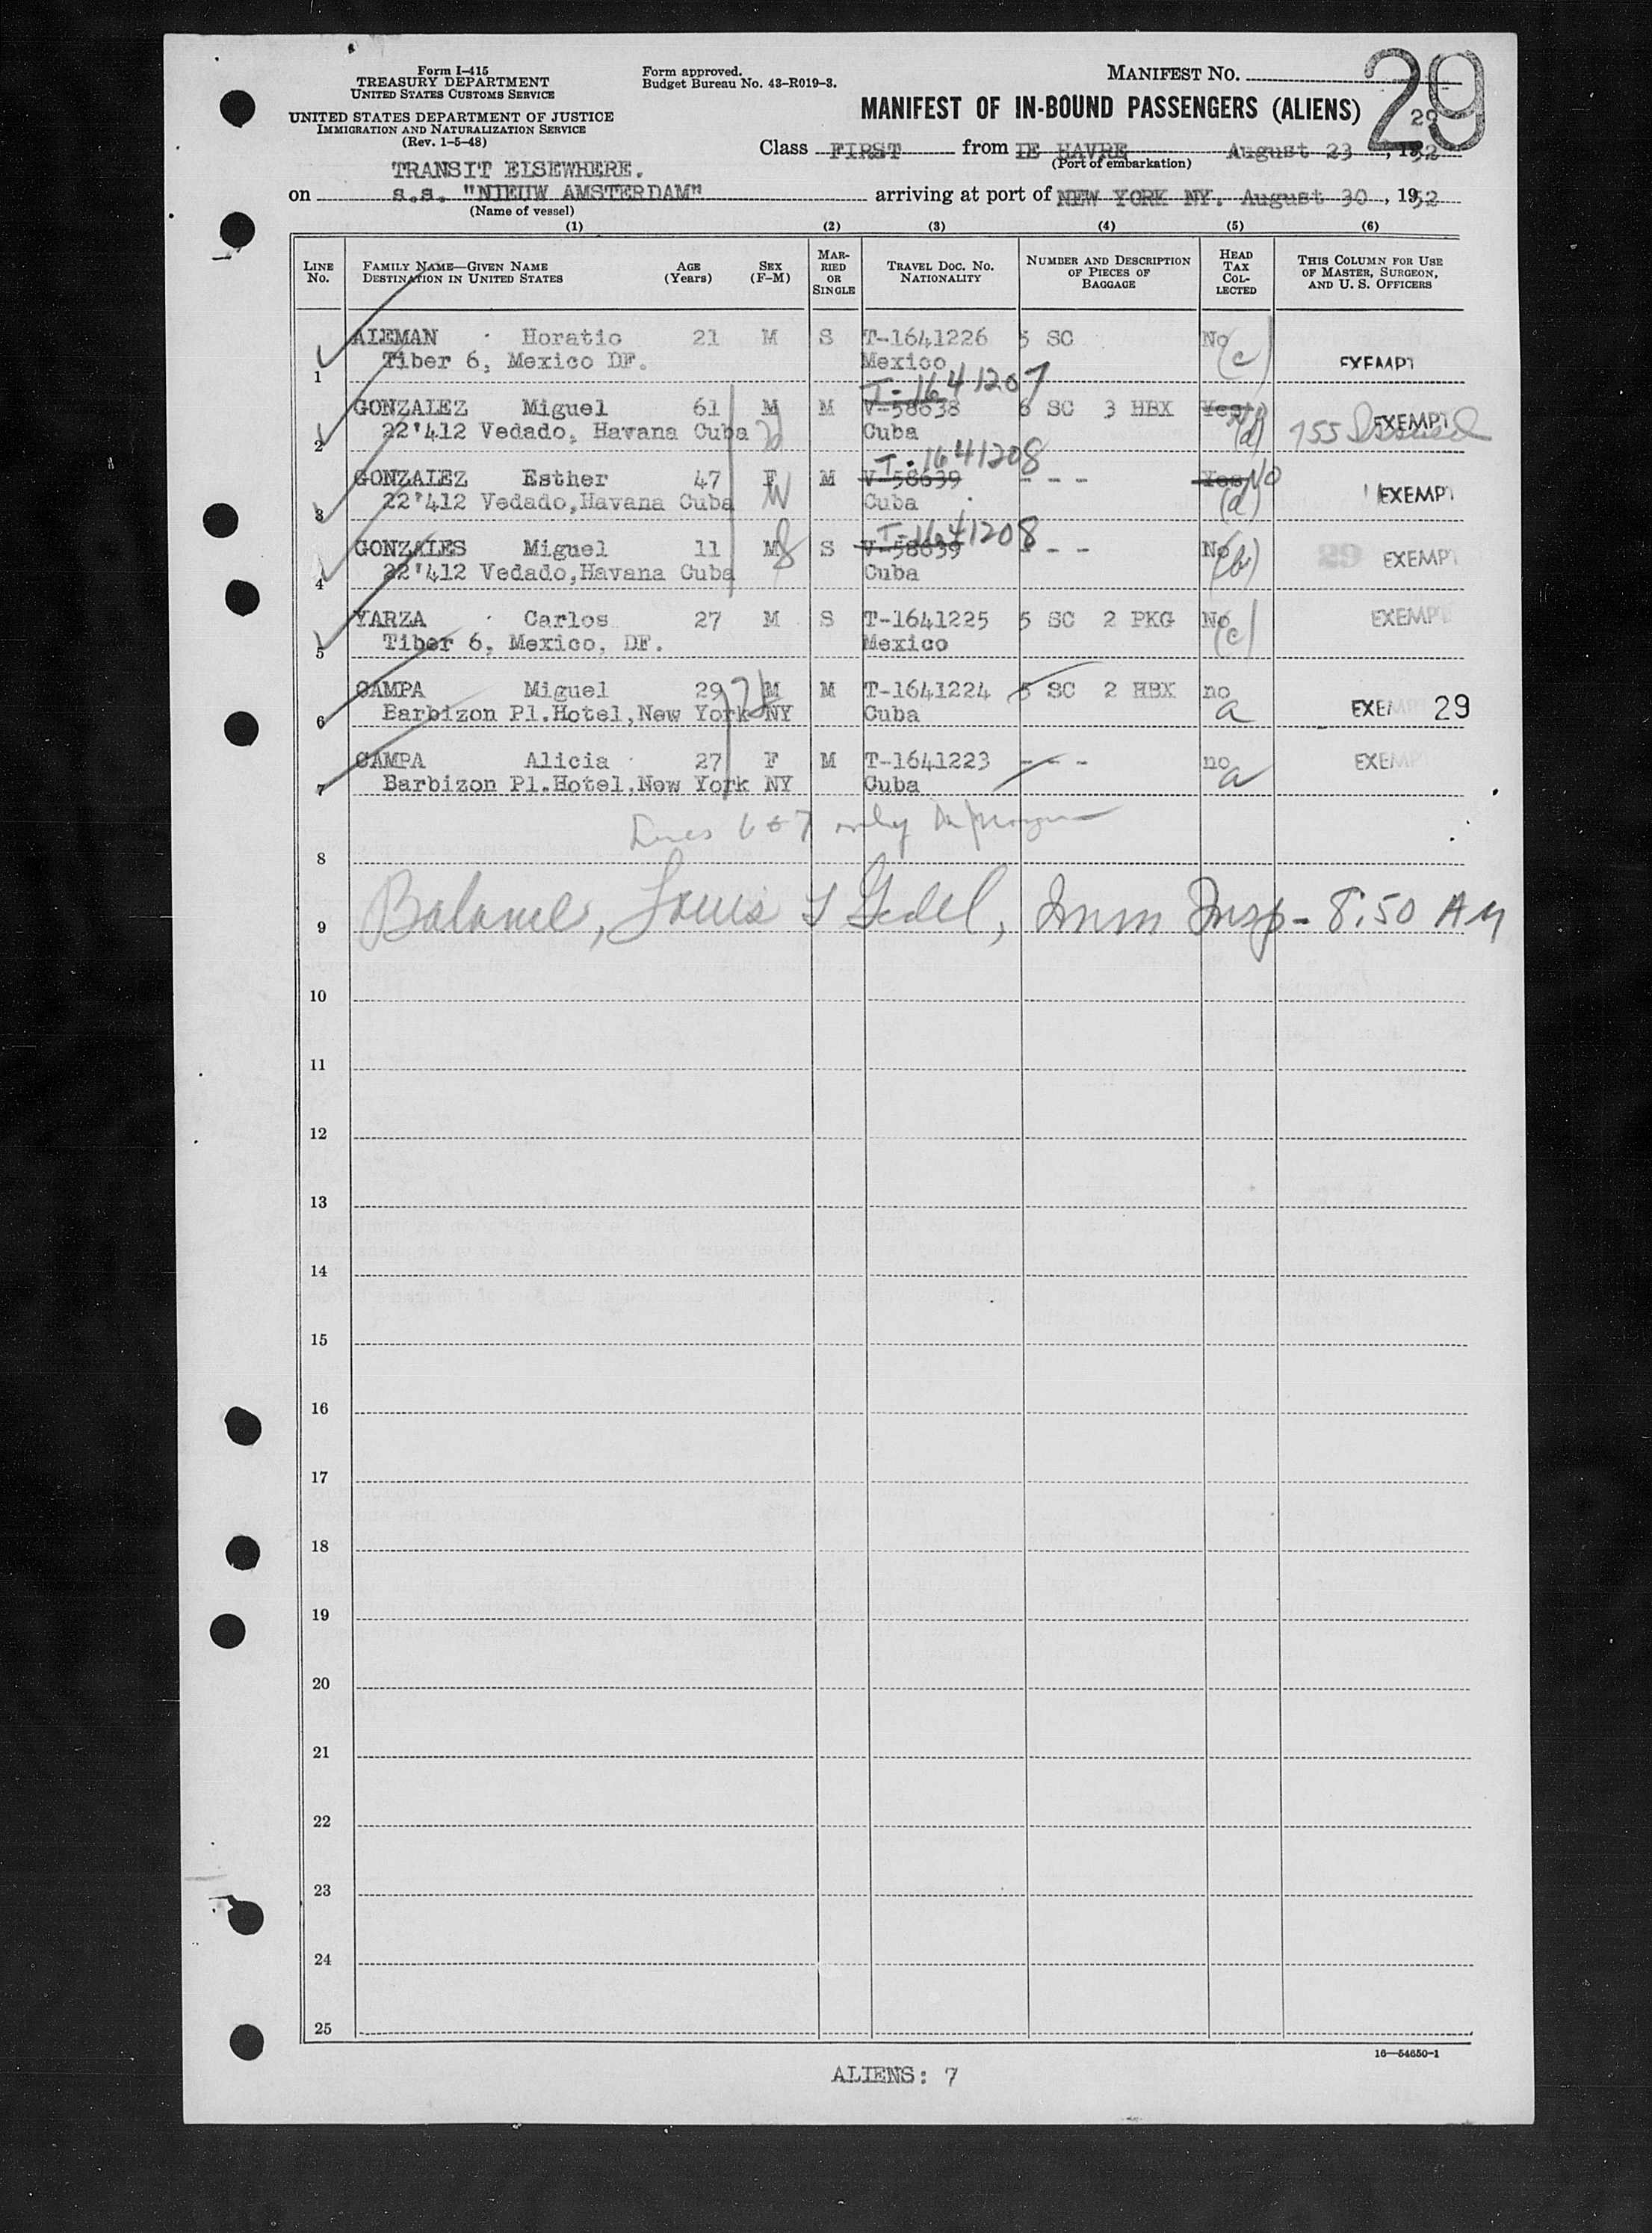 Form I-415
TREASURY DEPARTMENT
UNITED STATES CUSTOMS SERVICE
UNITED STATES DEPARTMENT OF JUSTICE
IMMIGRATION AND NATURALIZATION SERVICE
(Rev. 1-5-48)
Form approved.
Budget Bureau No. 43-R019-3.
MANIFEST NO.
29
29
MANIFEST OF IN-BOUND PASSENGERS (ALIENS)
Class FIRST from LE HAVRE August 23, 1952
(Port of embarkation)
TRANSIT ELSEWHERE.
on s.s. "NIEUW AMSTERDAM" arriving at port of NEW YORK NY. August 30, 1952
(Name of vessel)
(1) (2) (3) (4) (5) (6)
LINE NO. FAMILY NAME—GIVEN NAME DESTINATION IN UNITED STATES AGE (Years) SEX (F-M) MARRIED OR SINGLE TRAVEL DOC. NO. NATIONALITY NUMBER AND DESCRIPTION OF PIECES OF BAGGAGE HEAD TAX COLLECTED THIS COLUMN FOR USE OF MASTER, SURGEON, AND U. S. OFFICERS
ALEMAN Horatio 21 M S T-1641226 5 SC No
1 Tiber 6, Mexico DF. Mexico (c) EXEMPT
T-1641207
GONZALEZ Miguel 61 M M V-58638 6 SC 3 HBX Yes
2 22'412 Vedado, Havana Cuba Cuba (d) 755 Issued EXEMPT
T-1641208
GONZALEZ Esther 47 F W M V-58639 --- Yes NO
3 22'412 Vedado,Havana Cuba Cuba (d) EXEMPT
T-1641208
GONZALES Miguel 11 M S V-58639 --- No
4 22'412 Vedado,Havana Cuba Cuba (b) 29 EXEMPT
YARZA Carlos 27 M S T-1641225 5 SC 2 PKG No EXEMPT
5 Tiber 6, Mexico, DF. Mexico (c)
CAMPA Miguel 29 M M T-1641224 5 SC 2 HBX no
6 Barbizon Pl.Hotel,New York NY Cuba a EXEMPT 29
CAMPA Alicia 27 F M T-1641223 --- no EXEMPT
7 Barbizon Pl.Hotel.New York NY Cuba a
Lines 6 & 7 only
8
9 Balance, Louis Gedel, Imm Insp - 8:50 AM
10
11
12
13
14
15
16
17
18
19
20
21
22
23
24
25
16—54650-1
ALIENS: 7